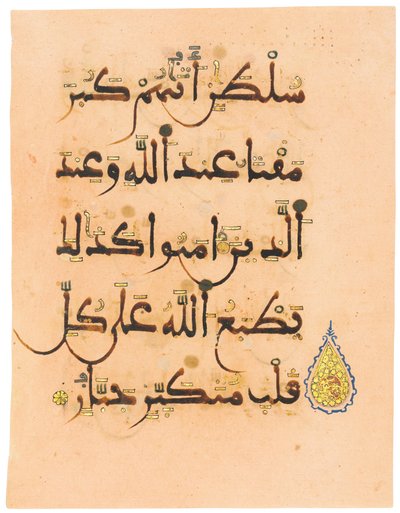 سُلْطَٰنٍ أَتَىٰهُمْ كَبُرَ
مَقْتًا عِندَ ٱللَّهِ وَعِندَ
ٱلَّذِينَ ءَامَنُوا كَذَٰلِكَ
يَطْبَعُ ٱللَّهُ عَلَىٰ كُلِّ
قَلْبِ مُتَكَبِّرٍ جَبَّارٍ